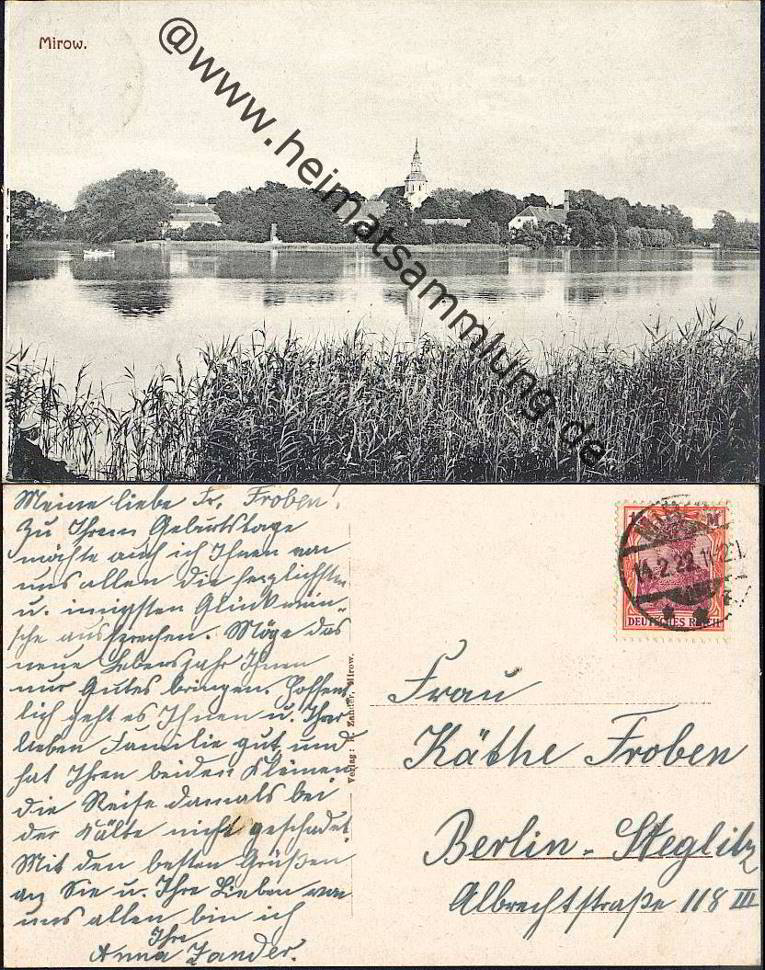 Mirow.
@www.heimatsammlung.de
Meine liebe Fr. Froben!
Zu Ihrem Geburtstage
möchte auch ich Ihnen von
uns allen die herzlichsten
u. innigsten Glückwün-
sche aussprechen. Möge das
neue Lebensjahr Ihnen
nur Gutes bringen. Hoffent-
lich geht es Ihnen u. Ihrer
lieben Familie gut und
hat Ihren beiden Kleinen
die Reise damals bei
der Kälte nicht geschadet.
Mit den besten Grüßen
an Sie u. Ihre Lieben von
uns allen bin ich
Ihre
Anna Zander.
Verlag: Zander, Mirow.
14.2.22.
DEUTSCHES REICH
Frau
Käthe Froben
Berlin-Steglitz
Albrechtstraße 118 III